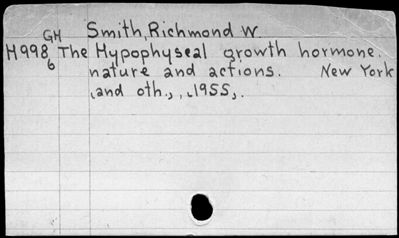 GH Smith, Richmond W
H998 The Hypophyseal growth hormone,
6 nature and actions. New York
[and oth., , 1955, .